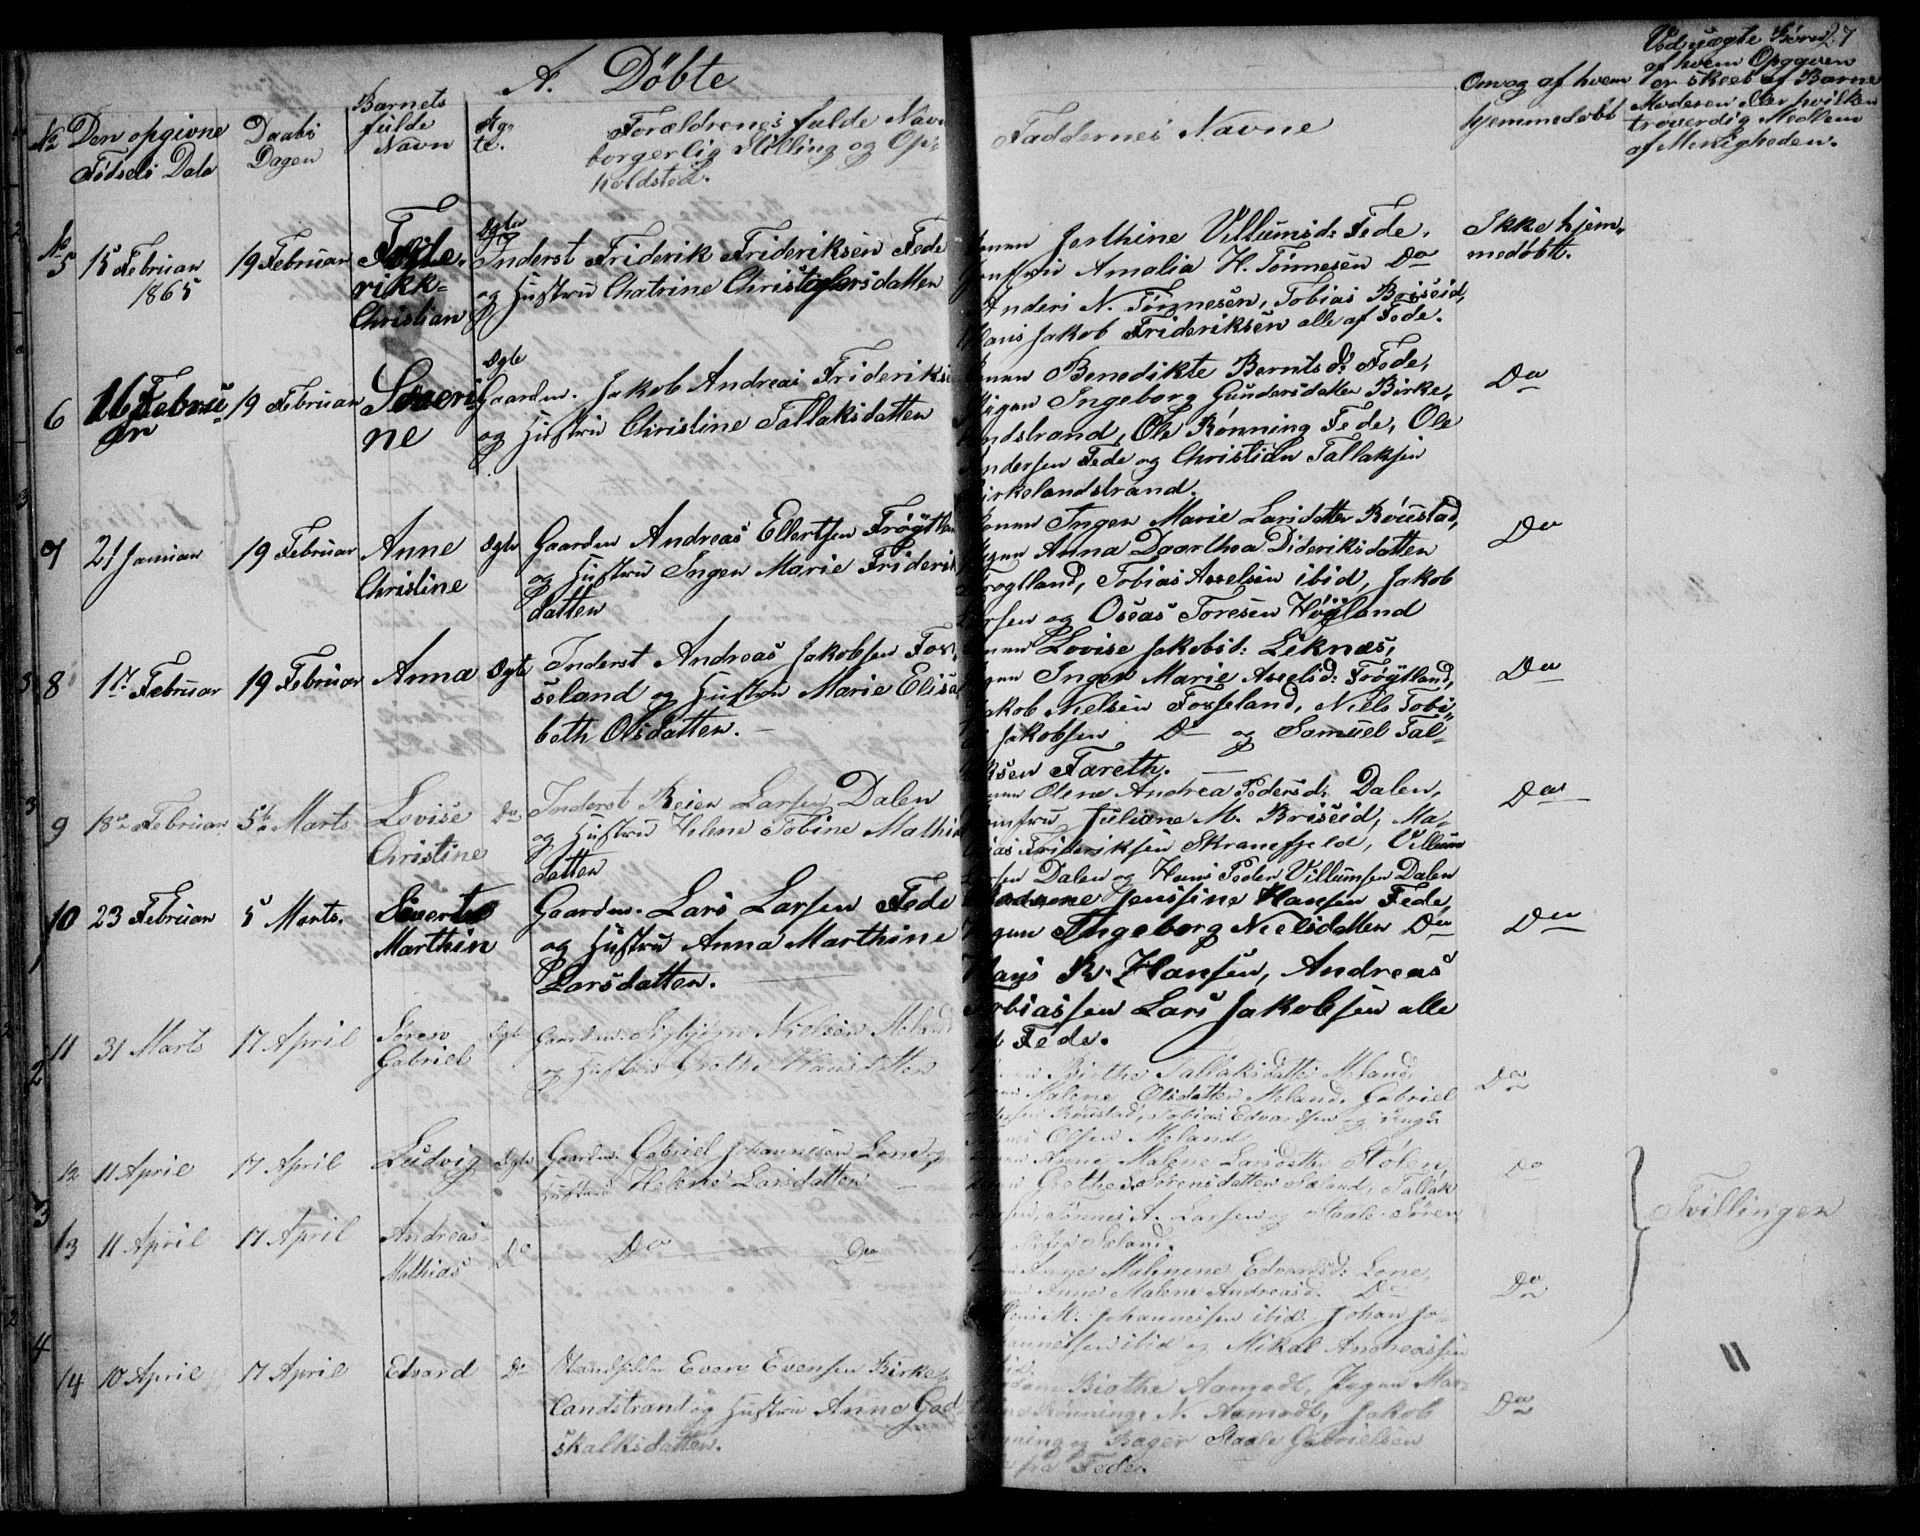 27
A. Döbte
No
Den opgivne
Födsels Dato
Daabs
Dagen
Barnets
fulde
Navn
Ægte
Forældrenes fulde Navn
borgerlig Stilling og Op-
holdsted.
Faddernes Navne
Omvag af hvem
hjemmedøbt
Ved uægte Børn
af hvem Opgaven
er skeet af Barne
Moderen eller hvilken
troverdig Medlem
af Menigheden.
No 5 15 Februar 1865
19 Februar
Fride-
rikk
Christian
Ægte
Inderst Friderik Frideriksen Fede
og Hustru Chatrine Christophersdatten
Jerthine Villumsd: Fede,
Amalia H. Tönnesen Do
Anders N. Tönnesen, Tobias Briseid,
Hans Jakob Frideriksen alle af Fede.
Ikke hjem-
medöbt.
6 16 Februar
19 Februar
Severi-
ne
Ægte
Gaardm. Jakob Andreas Frideriksen
og Hustru Christine Tallaksdatten
Benedikte Berntsd: Fede,
Ingeborg Gundersdatten Birke-
landstrand, Ole Rønning Fede, Ole
Andersen Fede og Christian Tallaksen
Birkelandstrand.
Do
7 21 Januar
19 Februar
Anne
Christine
Ægte
Gaardm Andreas Ellertsen Fröytland
og Hustru Ingen Marie Frideriks
datten
Ingen Marie Larsdatten Röustad,
Anna Doorthea Dideriksdatten
Froglland, Tobias Axelsen ibid, Jakob
og Oseas Toresen Höyland
Do
8 17 Februar
19 Februar
Anna
Ægte
Inderst Andreas Jakobsen Fos-
seland og Hustru Marie Elisa
beth Olsdatten. —
Lovise Jakobsd: Leknæs,
Ingen Marie Axelsd: Fröytland,
Jakob Nielsen Fosseland, Niels Tobi-
Jakobsen Do og Samuel Tal-
laksen Fareth. —
Do
9 18 Februar
5te Marts
Lovise
Christine
Do
Inderst Reier Larsen Dalen
og Hustru Helene Tobine Mathias
datten
Oline Andrea Pedersd: Dalen,
Jomfru Juliane M. Briseid, Ma-
Frideriksen Skranefjeld, Villum
Larsen Dalen og Hans Peder Villumsen Dalen
Do
10 23 Februar
5 Marts.
Sivert
Marthin
Gaardm. Lars Larsen Fede
og Hustru Anna Marthine
Larsdatten. —
Madame Jenssine Hansen Fede,
Ingeborg Nielsdatten Do
R. Hansen, Andreas
Tobiassen Lars Jakobsen alle
Fede.
Do
11 31 Marts
17 April
Sören
Gabriel
Ægte
Gaardm: Sigbjörn Nielsen Meland
og Hustru Grethe Hansdatten
Birthe Tallaksdatte Meland,
Malene Olsdatten Meland, Gabriel
Röustad, Tobias Edvardsen og
Olsen Meland
Do
12 11 April
17 April
Ludvig
Ægte
Gaardm: Gabriel Johannesen Lone og
Hustru Helene Larsdatten —
Anne Malene Larsdtte Stölen,
Grethe Sörensdatten Sæland, Tallak
Tönnes A. Larsen og Staale Sören
Sæland.
Do
Tvillinger
13 11 April
17 April
Andreas
Mathias
Do
Do — Do
Malenene Edvardsd: Lone,
Anne Malene Andreasd: Do
M. Johannessen ibid. Johan Jo-
hannessen ibid og Mikal Andreassen
ibid
Do
"
14 10 April
17 April
Edvard
Do
Even Evensen Birke-
landstrand og Hustru Anne God
skalksdatten.
Madam Birthe Aamodt, Pigen Mar-
Rønning, N. Aamodt, Jakob
Rønning og Bager Staale Gabrielsen
fra Fede
Do